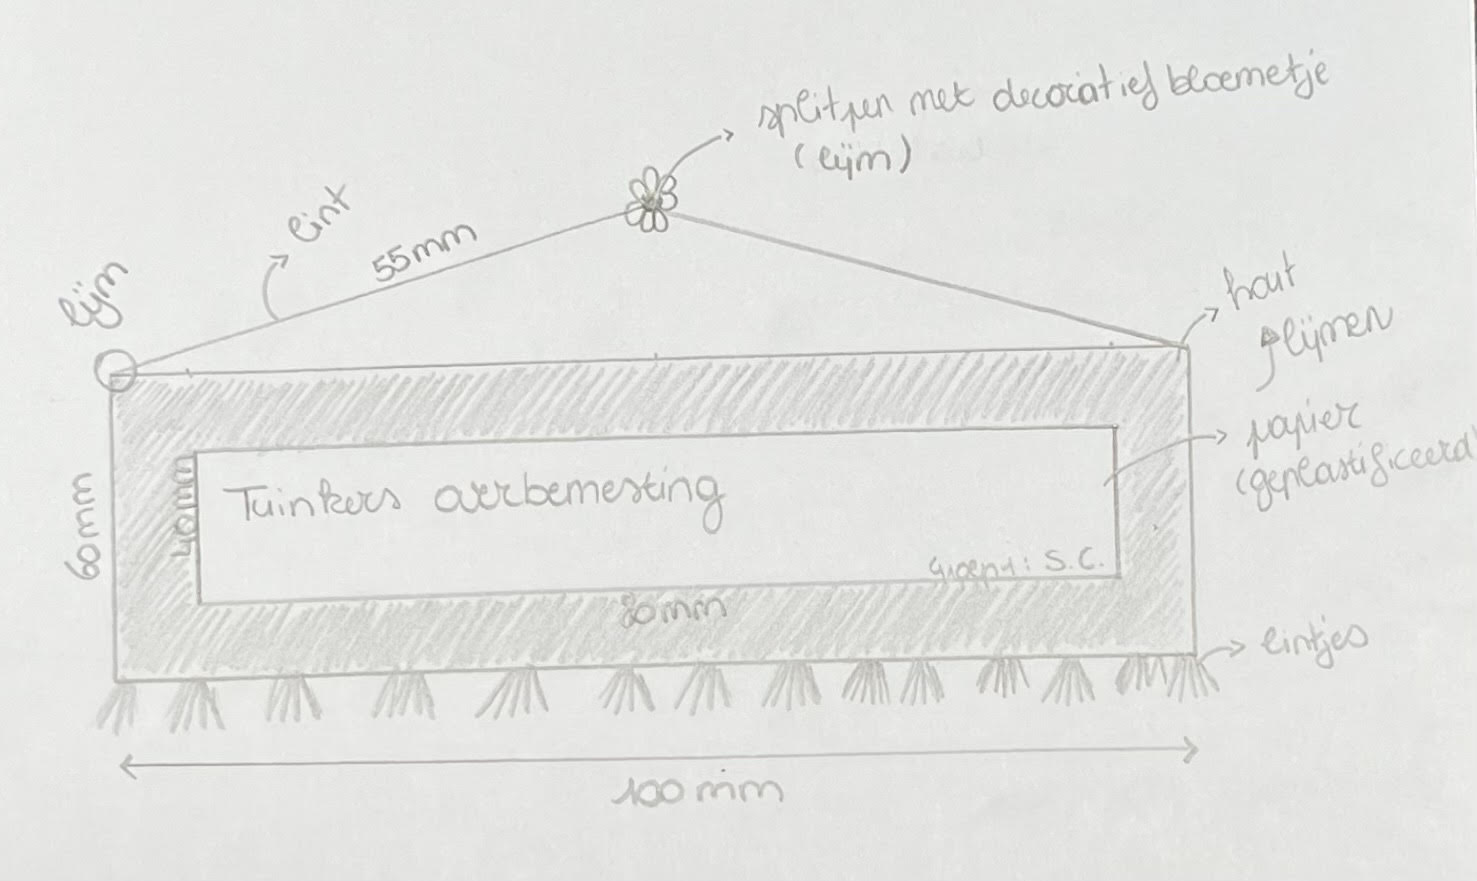 splitpen met decoratief bloemetje
(lijm)
lint
55mm
lijm
hout
lijmen
papier
(geplastificeerd)
60mm
40mm
Tuinkers overbemesting
Groep 4: S.C.
80mm
lintjes
100 mm